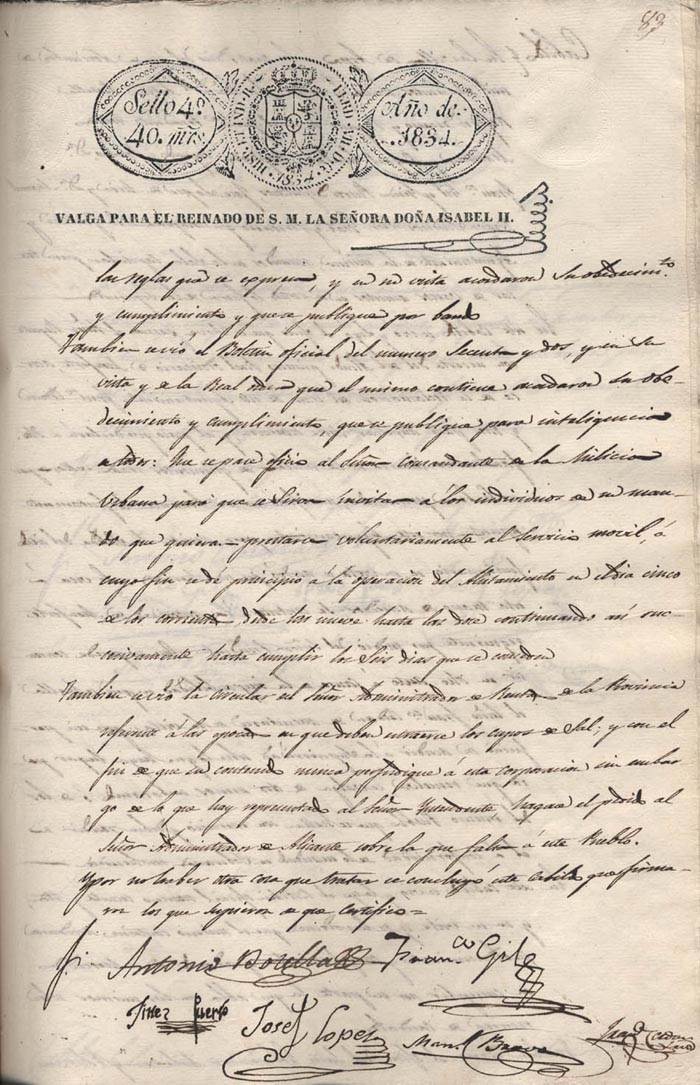 83
Sello 4º
40. mrs.
HISP. ET IND. R. FERD. VII. D. G.
1834
Año de
1834.
VALGA PARA EL REINADO DE S. M. LA SEÑORA DOÑA ISABEL II.
las reglas que se expresa, y en su vista acordaron su obedecimto.
y cumplimiento y que se publique por bando
Tambien se vió el Boletin oficial del numero Sesenta y dos, y en su
vista y de la Real orden que el mismo contiene acordaron su obe-
decimiento y cumplimiento, que se publique para inteligencia
de todos: Que se pase oficio al Señor Comandante de la Milicia
Urbana para que se sirva invitar á los individuos de su man-
do que quieran prestarse voluntariamente al Servicio movil, á
cuyo fin se dé principio á la operacion del Alistamiento en el dia cinco
de los corrientes desde las nueve hasta las doce continuando asi suc-
cesivamente hasta cumplir los Seis dias que se conceden
Tambien se vió la circular del Señor Administrador de Rentas de la Provincia
referente á las epocas en que deben extraerse los cupos de Sal; y con el
fin de que su contenido nunca perjudique á esta corporacion sin embar-
go de lo que hay representado al Señor Yntendente hagase el pedido al
Señor Administrador de Alicante sobre la que falta á este Pueblo.
Y por no haber otra cosa que tratar se concluyó este cabildo que firma-
ron los que supieron de que certifico=
Antonio Botella Franco. Gil
Puerto Josef Lopez Manl. Bravo